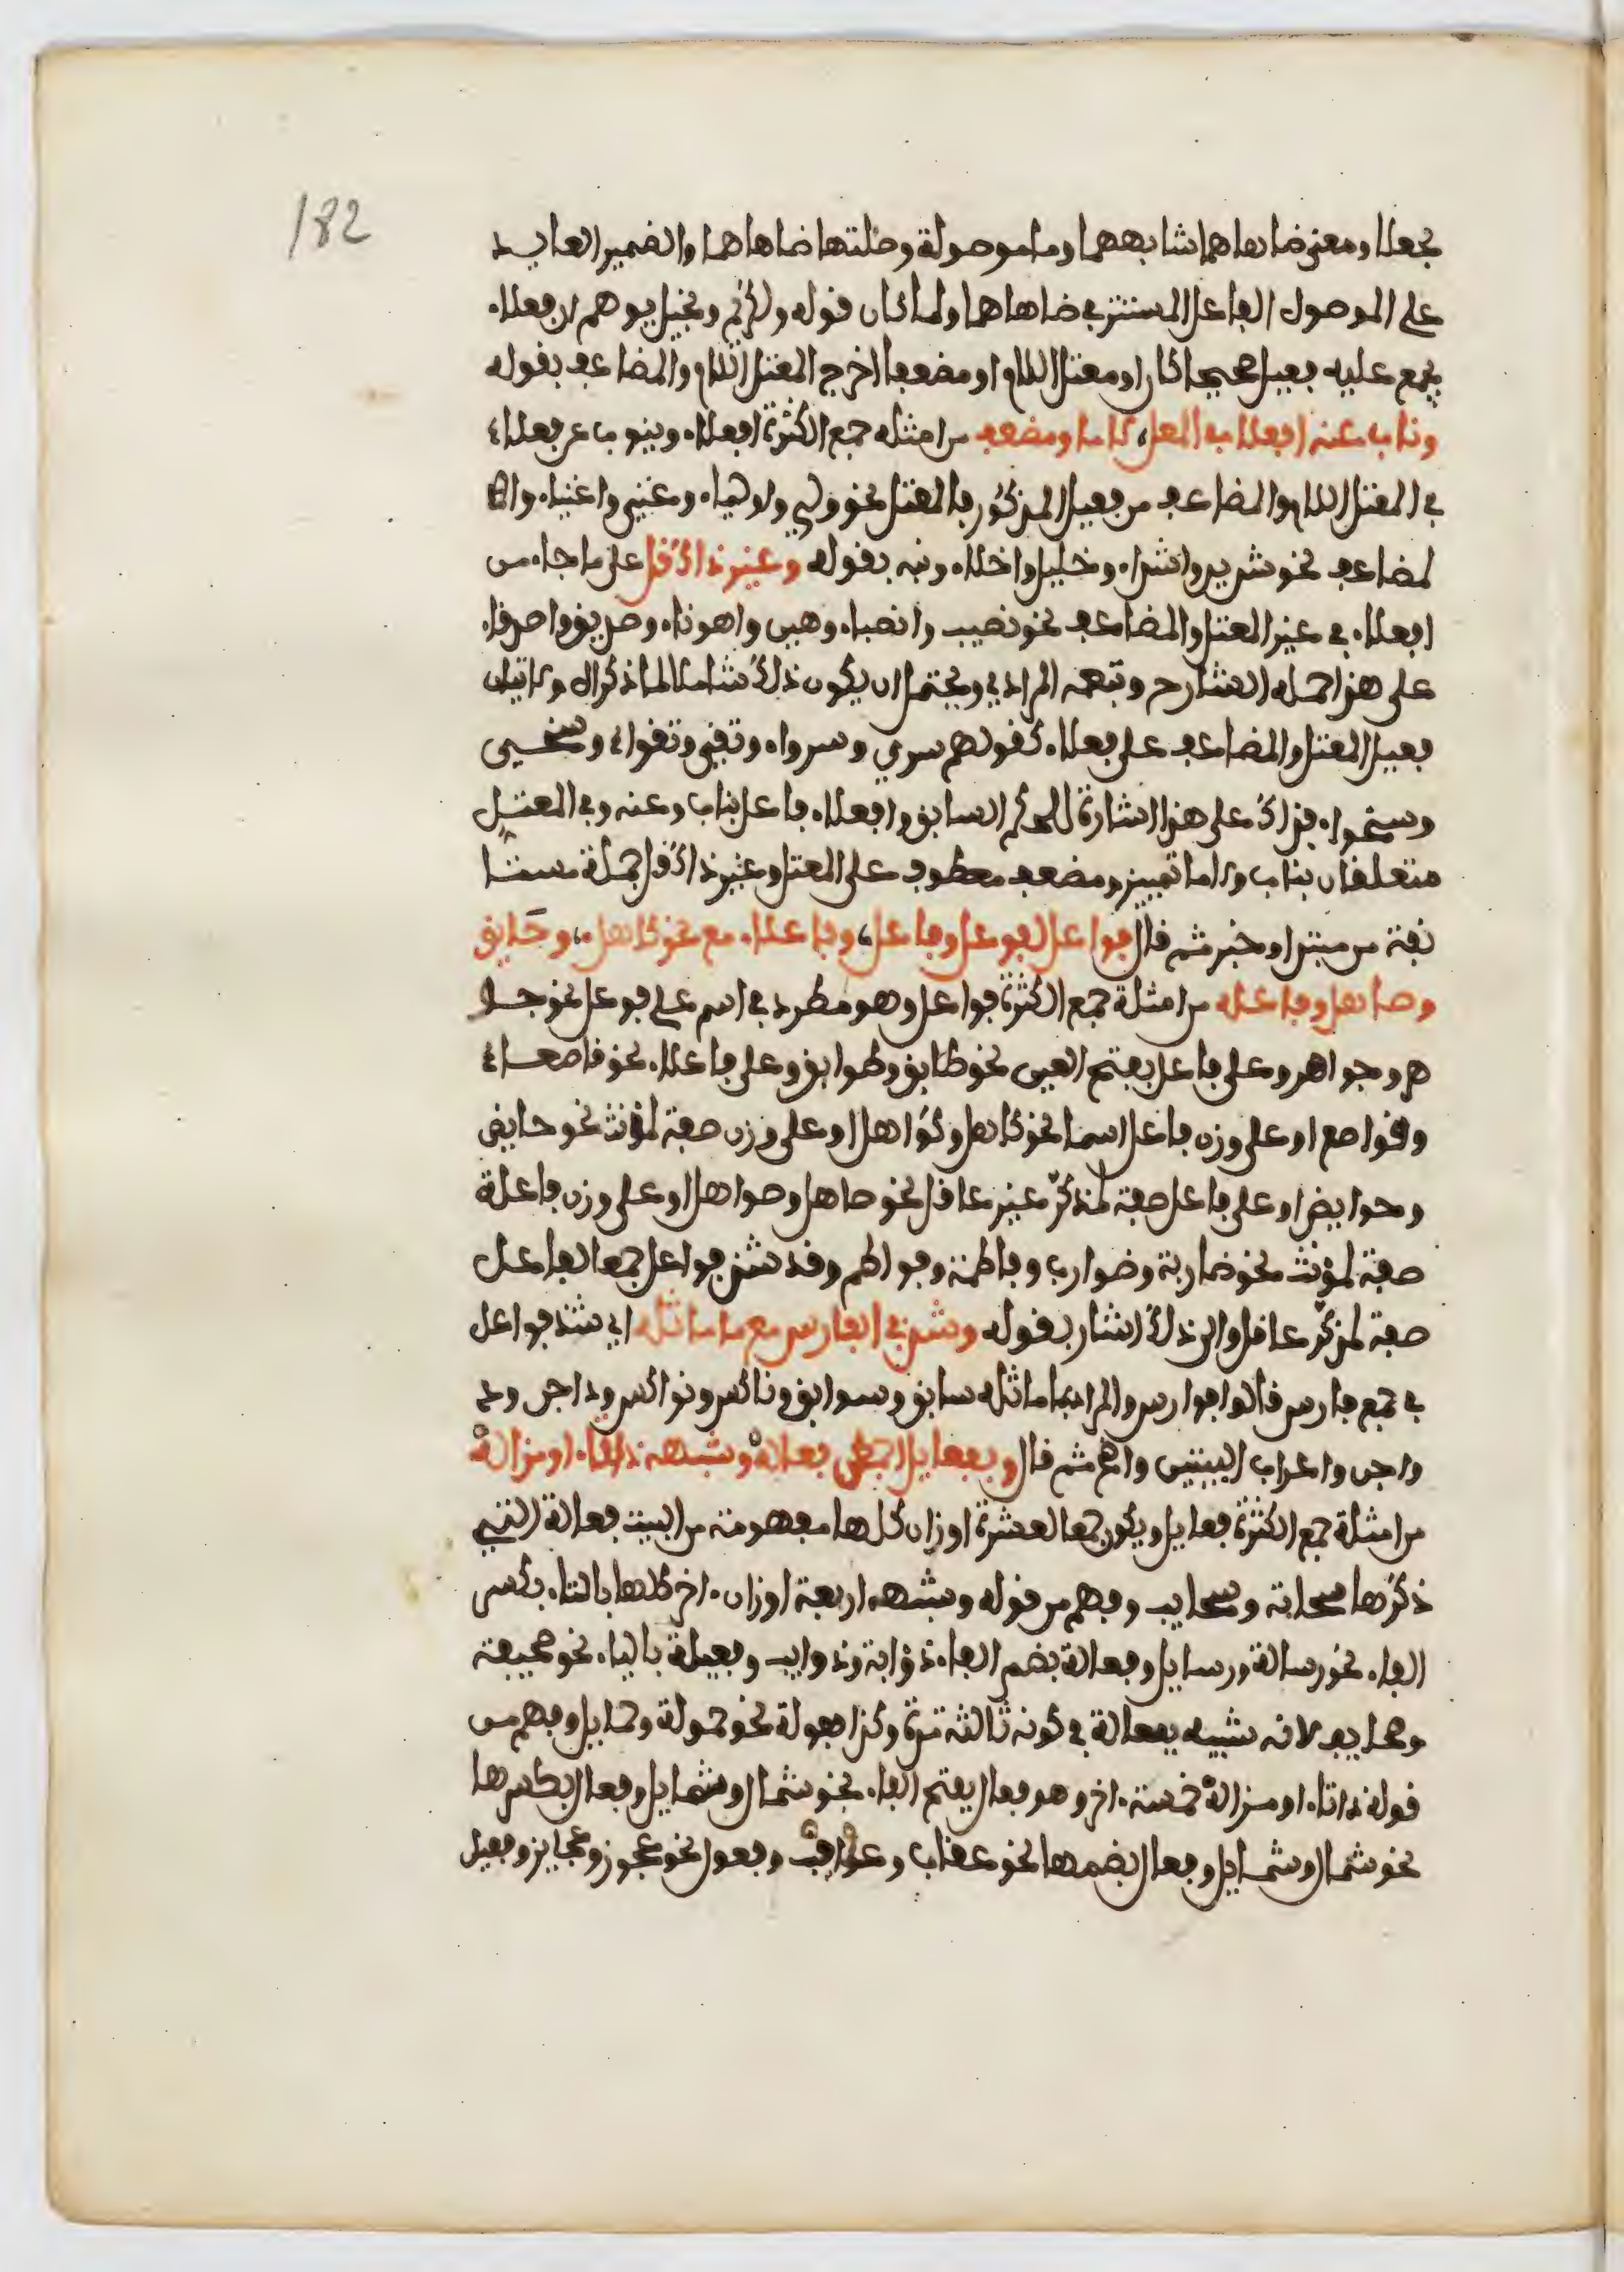 182
بجعلا ومعنى ضاهاهما شابههما وما موصولة وصلتها ضاهاهما والضمير العايد
على الموصول الفاعل المستتر في ضاهاهما ولما كان قوله ولكريم وبخيل يوهم ان فعلاء
يجمع عليه فعيل صحيحا كان او معتل اللام او مضعفا اخرج المعتل اللام والمضاعف بقوله
وناب عنه افعلاء في المعل، لاما ومضعف من امثلة جمع الكثرة افعلاء وينوب عن فعلاء
في المعتل اللام والمضاعف من فعيل المذكور فالمعتل نحو ولي واولياء وغني واغنياء وا
لمضاعف نحو شديد واشداء وخليل واخلاء ونبه بقوله وغير ذاك قل على ما جاء من
افعلاء في غير المعتل والمضاعف نحو نصيب وانصباء وهين واهوناء وصديق واصدقاء
على هذا حمله الشارح وتبعه المرادي ويحتمل ان يكون ذلك شاملا لما ذكر اولا واتيان
فعيل المعتل والمضاعف على فعلاء كقولهم سري وسرواء وتقي وتقواء وسخي
وسخواء فذاك على هذا اشارة للحكم السابق وافعلاء فاعل بناب وعنه وفي المعتل
متعلقان بناب ولاما تمييز ومضعف معطوف على المعتل وغير ذاك قل جملة مستا
نفة من مبتدا وخبر ثم قال فواعل لفوعل وفاعل، وفاعلاء مع نحو كاهل، وحايض
وصاهل وفاعله من امثلة جمع الكثرة فواعل وهو مطرد في اسم على فوعل نحو جو
هر وجواهر وعلى فاعل بفتح العين نحو طابق وطوابق وعلى فاعلاء نحو قاصعاء
وقواصع او على وزن فاعل اسما نحو كاهل وكواهل او على وزن صفة لمؤنث نحو حايض
وحوايض او على فاعل صفة لمذكر غير عاقل نحو صاهل وصواهل او على وزن فاعلة
صفة لمؤنث نحو ضاربة وضوارب وفاطمة وفواطم وقد شذ فواعل جمعا لفاعل
صفة لمذكر عاقل والى ذلك اشار بقوله وشذ في الفارس مع ما ماثله اي شذ فواعل
في جمع فارس قالوا فوارس والمراد بما ماثله سابق وسوابق وناكس ونواكس وداجن ود
واجن واعراب البيتين واضح ثم قال وبفعايل اجمعن فعاله وشبهه ذا تاء او مزاله
من امثلة جمع الكثرة فعايل ويكون جمعا لعشرة اوزان كلها مفهومة من البيت فعالة التي
ذكرها سحابة وسحايب وفهم من قوله وشبهه اربعة اوزان اخر كلها بالتاء بكسر
الفاء نحو رسالة ورسايل وفعالة بضم الفاء ذؤابة وذوايب وفعيلة بالياء نحو صحيفة
وصحايف لانه شبيه بفعالة في كونه ثالثه مدة وكذا فعولة نحو حمولة وحمايل وفهم من
قوله ذا تاء او مزاله خمسة اخر وهو فعال بفتح الفاء نحو شمال وشمايل وفعال بكسرها
نحو شمال وشمايل وفعال بضمها نحو عقاب وعقايب وفعول نحو عجوز وعجايز وفعيل